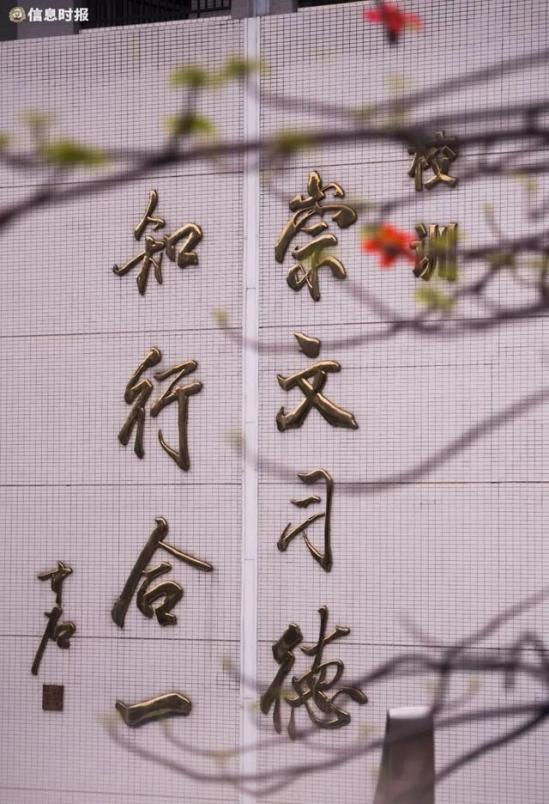 信息时报
校训
崇文习德
知行合一
中石